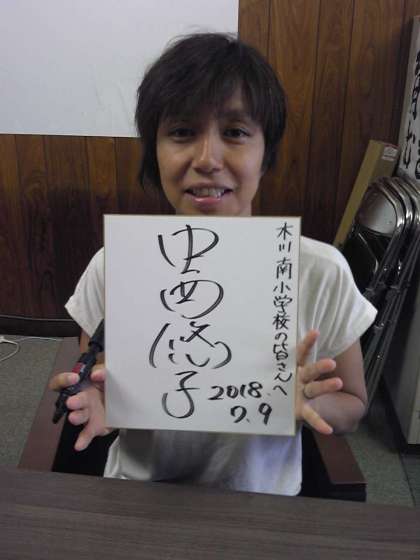 木川南小学校の皆さんへ
中西悠子
2018.
7.9